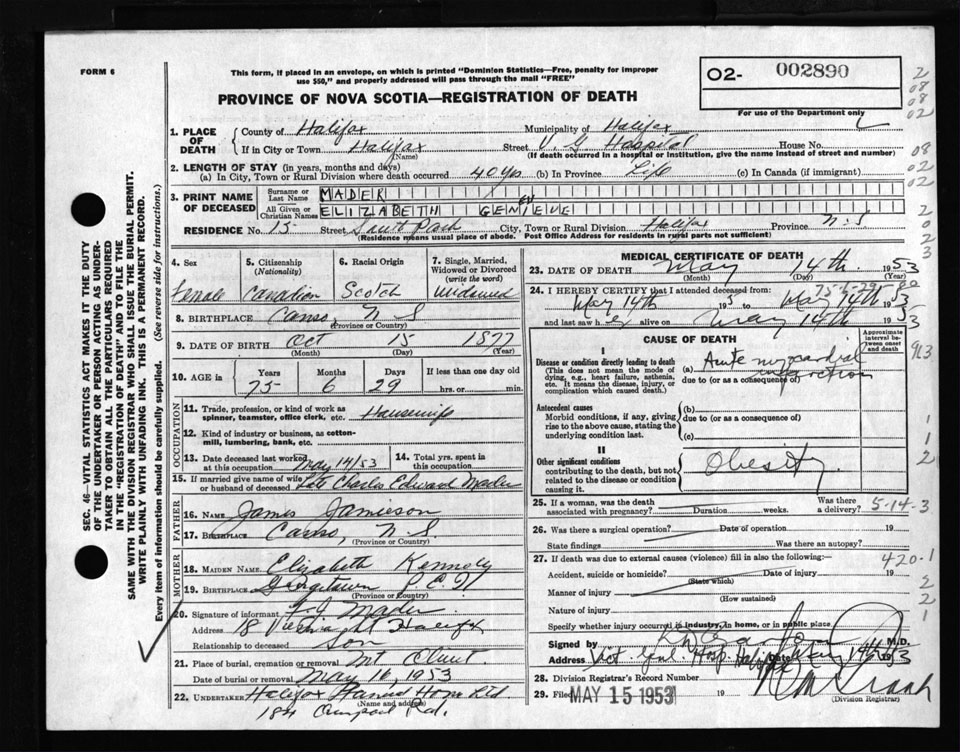 FORM 6
This form, if placed in an envelope, on which is printed "Dominion Statistics—Free, penalty for improper
use $50," and properly addressed will pass through the mail "FREE"
O2- 002890
PROVINCE OF NOVA SCOTIA—REGISTRATION OF DEATH
For use of the Department only
1. PLACE OF DEATH
County of Halifax Municipality of Halifax
If in City or Town Halifax Street V. G. Hospital House No.
(Name) (If death occurred in a hospital or institution, give the name instead of street and number)
2. LENGTH OF STAY (in years, months and days)
(a) In City, Town or Rural Division where death occurred 40 yrs (b) In Province Life (c) In Canada (if immigrant)
3. PRINT NAME OF DECEASED
Surname or Last Name MADER
All Given or Christian Names ELIZABETH
RESIDENCE No. 15 Street South Park City, Town or Rural Division Halifax Province N.S
(Residence means usual place of abode. Post Office Address for residents in rural parts not sufficient)
4. Sex
Female
5. Citizenship (Nationality)
Canadian
6. Racial Origin
Scotch
7. Single, Married, Widowed or Divorced (write the word)
Widowed
8. BIRTHPLACE Canso, N S
(Province or Country)
9. DATE OF BIRTH Oct 15 1877
(Month) (Day) (Year)
10. AGE in Years Months Days If less than one day old
75 6 29 hrs. or min.
OCCUPATION
11. Trade, profession, or kind of work as spinner, teamster, office clerk, etc. Housewife
12. Kind of industry or business, as cotton-mill, lumbering, bank, etc.
13. Date deceased last worked at this occupation May 14/53
14. Total yrs. spent in this occupation
15. If married give name of wife or husband of deceased Late Charles Edward Mader
FATHER
16. NAME James Jamieson
17. BIRTHPLACE Canso, N.S.
(Province or Country)
MOTHER
18. MAIDEN NAME Elizabeth Kennedy
19. BIRTHPLACE Georgetown P.E.I
(Province or Country)
20. Signature of informant Mader
Address 18 Halifax
Relationship to deceased Son
21. Place of burial, cremation or removal Mt Olivet
Date of burial or removal May 16, 1953
22. UNDERTAKER Halifax Home Ltd
(Name and address)
184 Rd.
MEDICAL CERTIFICATE OF DEATH
23. DATE OF DEATH May 14th 1953
(Month) (Day) (Year)
24. I HEREBY CERTIFY that I attended deceased from:
75-6-29 80
May 14th 195 to May 14th 1953
and last saw her alive on May 14th 1953
CAUSE OF DEATH
Approximate interval between onset and death
I
Disease or condition directly leading to death
(This does not mean the mode of dying, e.g., heart failure, asthenia, etc. It means the disease, injury, or complication which caused death.)
(a) Acute myocardial infarction
due to (or as a consequence of)
Antecedent causes
Morbid conditions, if any, giving rise to the above cause, stating the underlying condition last.
(b)
due to (or as a consequence of)
(c)
II
Other significant conditions
contributing to the death, but not related to the disease or condition causing it.
Obesity
25. If a woman, was the death associated with pregnancy? Duration weeks. Was there a delivery?
5-14-3
26. Was there a surgical operation? Date of operation 19
State findings Was there an autopsy?
27. If death was due to external causes (violence) fill in also the following:—
420-1
Accident, suicide or homicide? Date of injury 19
(State which)
Manner of injury
(How sustained)
Nature of injury
Specify whether injury occurred in industry, in home, or in public place
Signed by M.D.
Address Vict Genl Hosp. Halifax
28. Division Registrar's Record Number
29. Filed MAY 15 1953 19
(Division Registrar)
SEC. 46—VITAL STATISTICS ACT MAKES IT THE DUTY
OF THE UNDERTAKER OR PERSON ACTING AS UNDER-
TAKER TO OBTAIN ALL THE PARTICULARS REQUIRED
IN THE "REGISTRATION OF DEATH" AND TO FILE THE
SAME WITH THE DIVISION REGISTRAR WHO SHALL ISSUE THE BURIAL PERMIT.
WRITE PLAINLY WITH UNFADING INK. THIS IS A PERMANENT RECORD.
Every item of information should be carefully supplied. (See reverse side for instructions.)